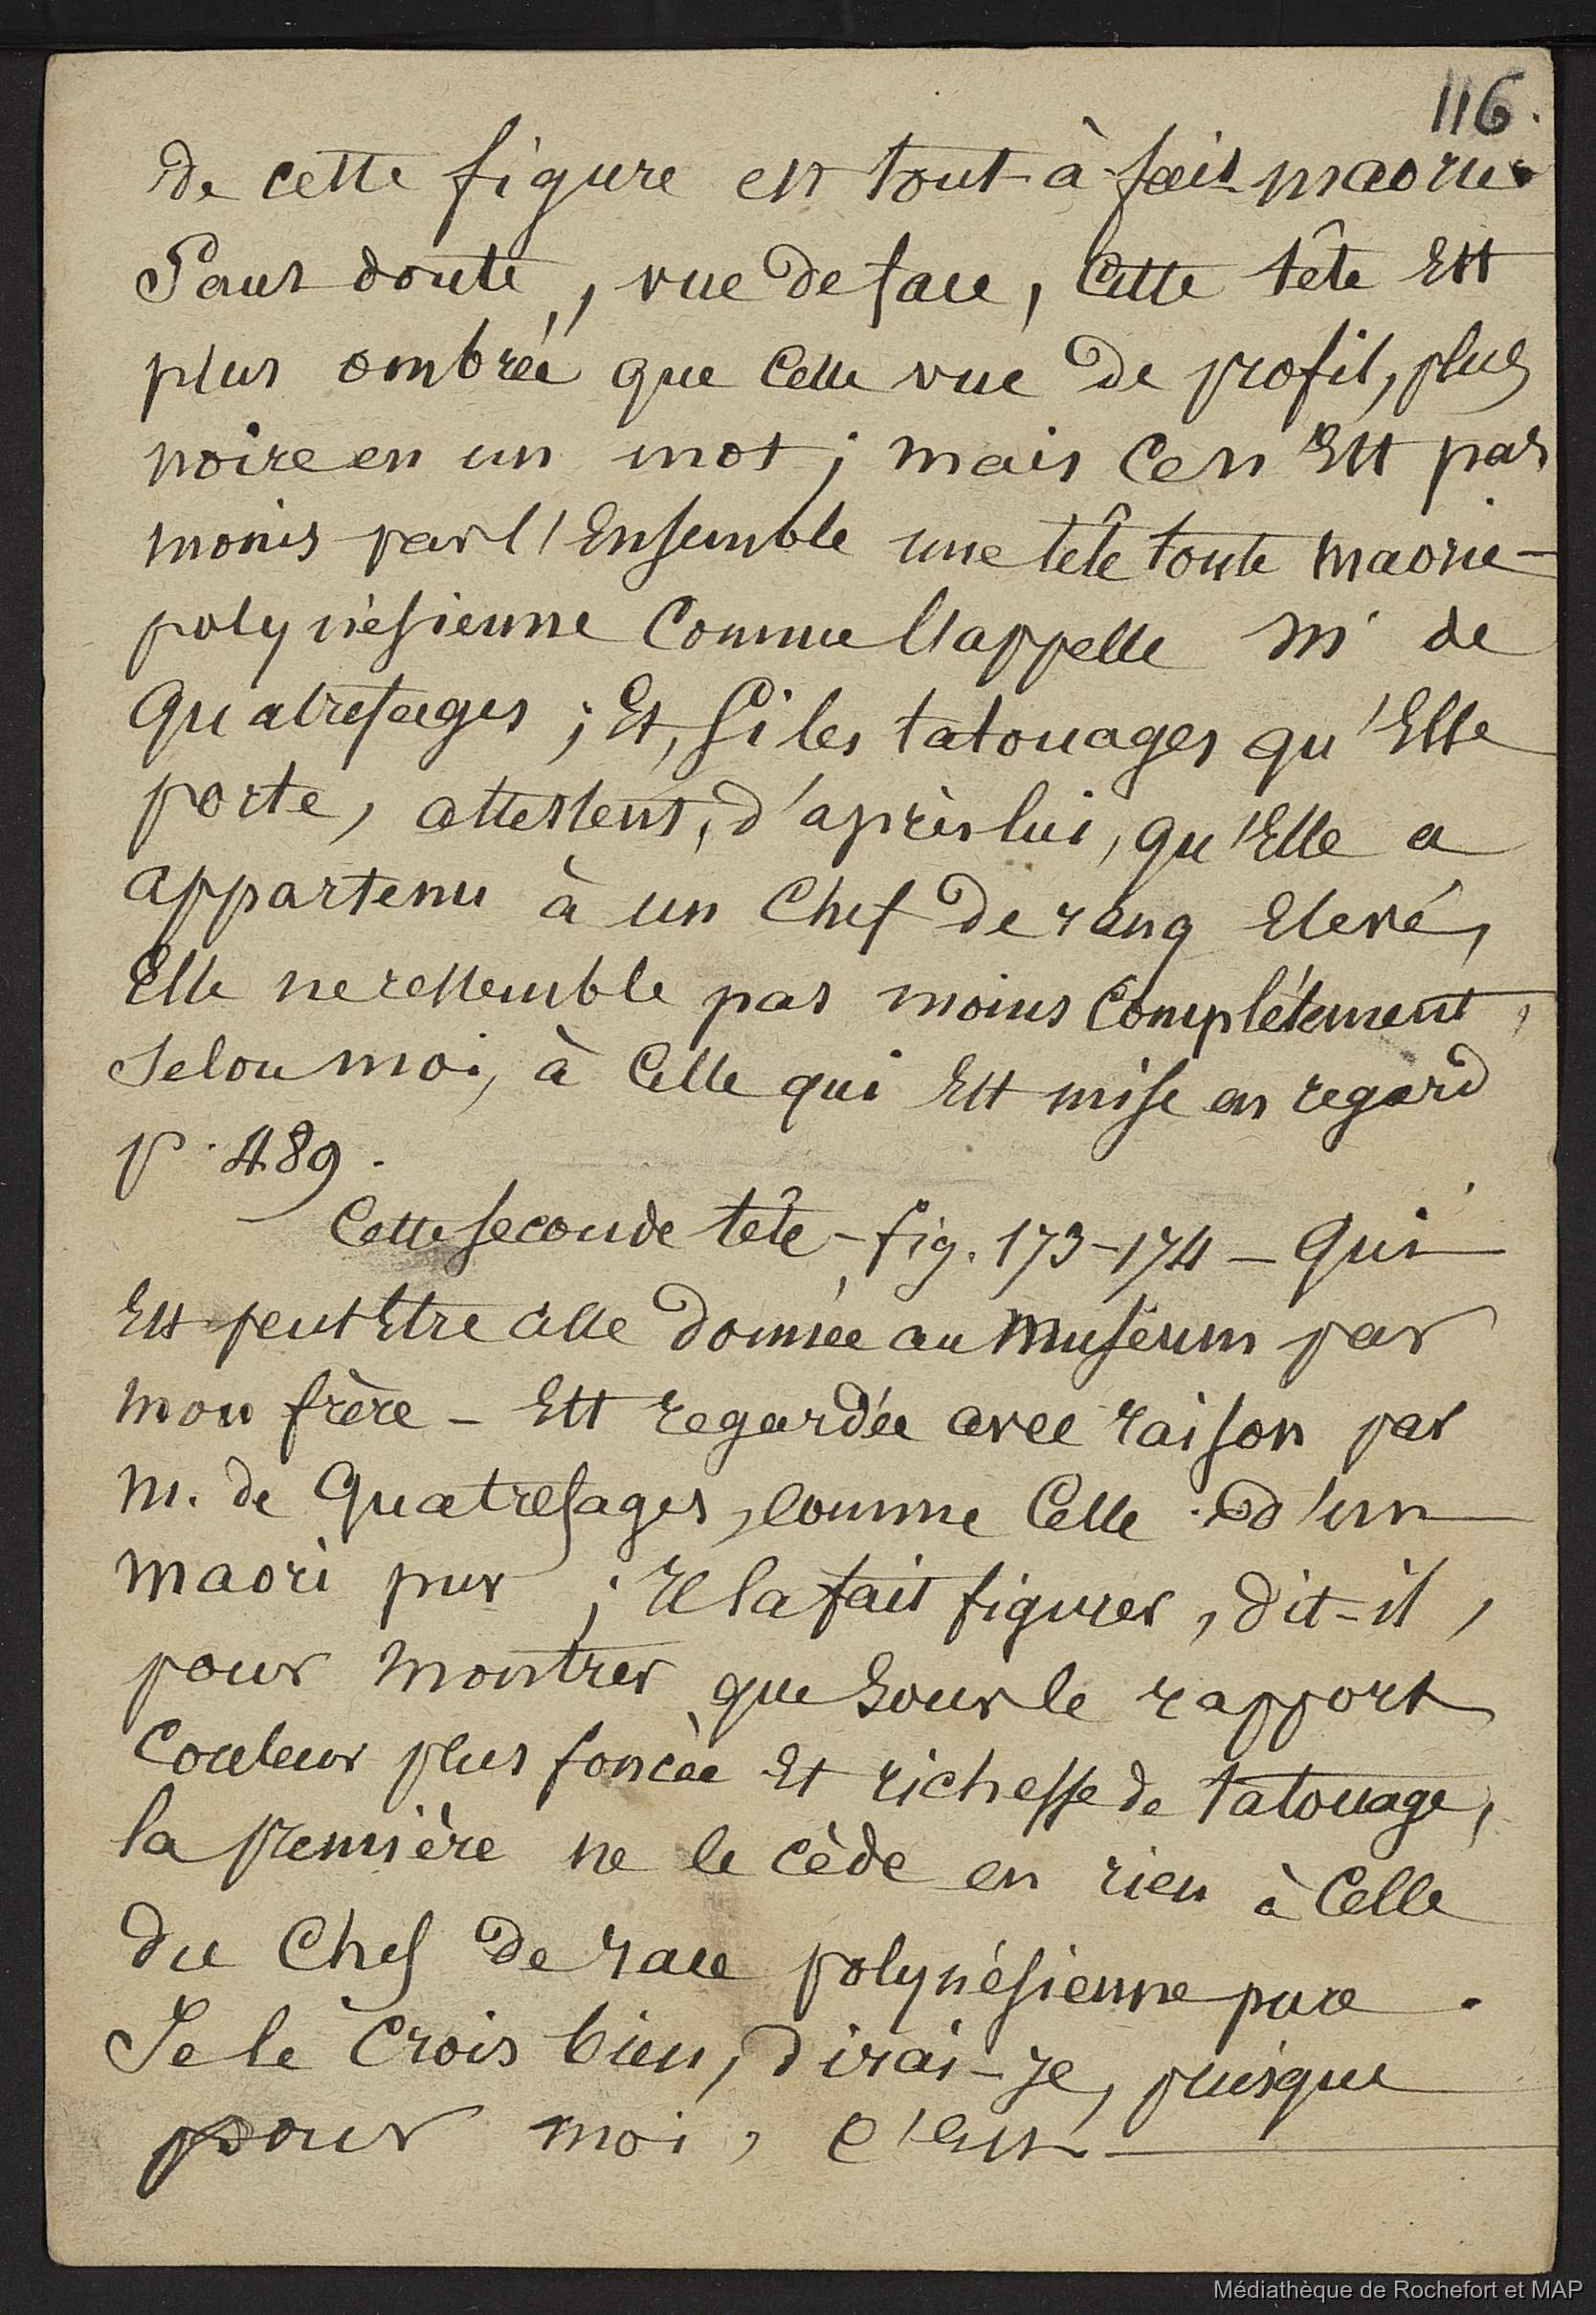 116.
de cette figure est tout-à-fait maorie.
Sans doute, vue de face, cette tête est
plus ombrée que celle vue de profil, plus
noire en un mot ; mais ce n'est pas
moins par l'ensemble une tête toute maorie-
polynésienne comme l'appelle M. de
Quatrefages ; et, si les tatouages qu'elle
porte, attestent, d'après lui, qu'elle a
appartenu à un chef de rang élevé,
elle ne ressemble pas moins complétement,
selon moi, à celle qui est mise en regard
p. 489.
Cette seconde tête - fig. 173-174 - qui
est peut être celle donnée au muséum par
mon frère - est regardée avec raison par
M. de Quatrefages, comme celle d'un
maori pur ; il la fait figurer, dit-il,
pour montrer que sous le rapport
couleur plus foncée et richesse de tatouage,
la première ne le cède en rien à celle
du chef de race polynésienne pure.
Je le crois bien, dirai-je, puisque
pour moi, c'est
Médiathèque de Rochefort et MAP